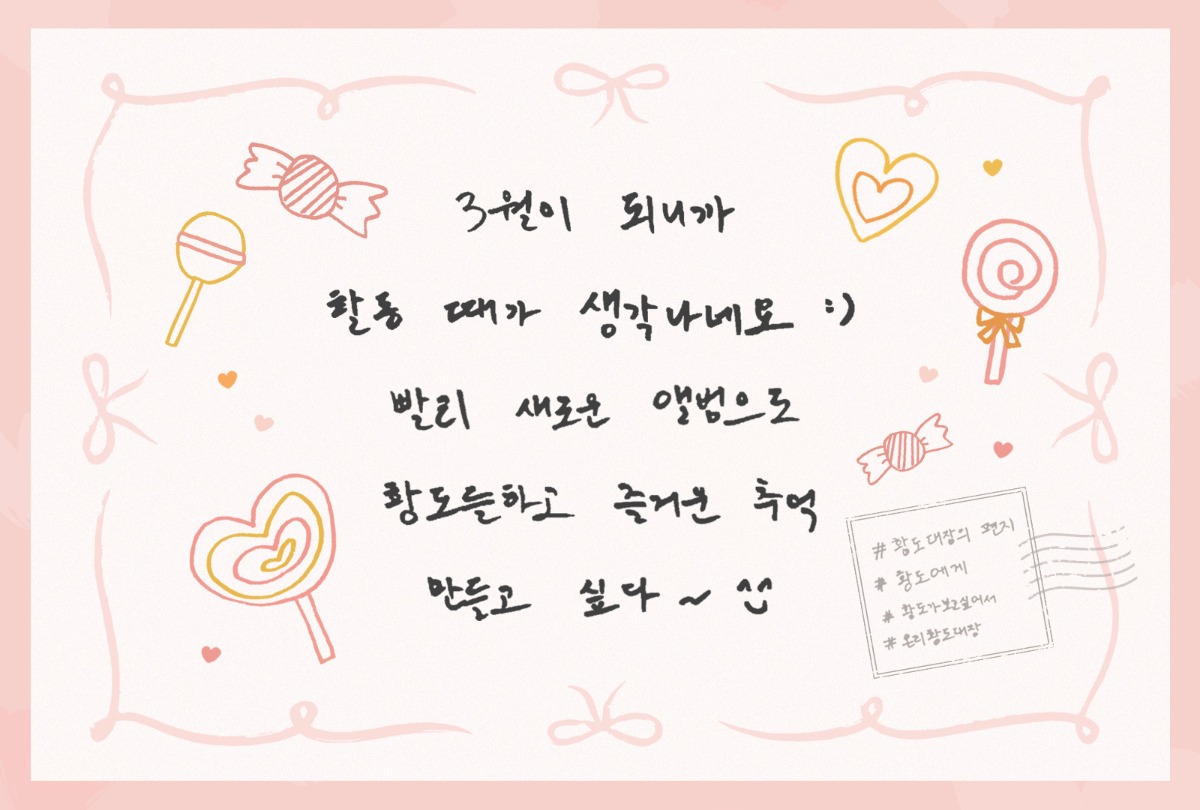 3월이 되니까
활동 때가 생각나네요 :)
빨리 새로운 앨범으로
황도들하고 즐거운 추억
만들고 싶다 ~ ^^
#황도대장의 편지
#황도에게
#황도가보고싶어서
#온리황도대장